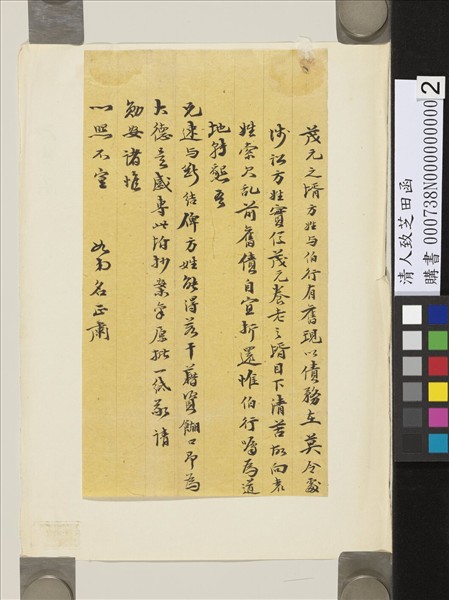 茂元之婿方姓與伯行有舊現以債務在莫令處
涉訟方姓實係茂元養老之婿目下清苦故向袁
姓索欠乱前舊債自宜折還惟伯行囑為道
地特懇吾
兄速与斷結俾方姓能得若干藉資餬口即為
大德之感専此附抄案字原批一紙敬請
勛安諸惟
心照不宣 如弟名正肅
清人致芝田函
購書 000738N000000000
2